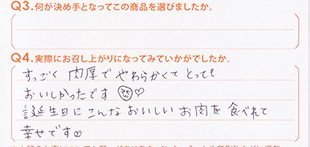 Q3.何が決め手となってこの商品を選びましたか。
Q4.実際にお召し上がりになってみていかがでしたか。
すっごく 肉厚で やわらかくて とっても
おいしかったです
誕生日に こんな おいしい お肉を 食べれて
幸せです♡